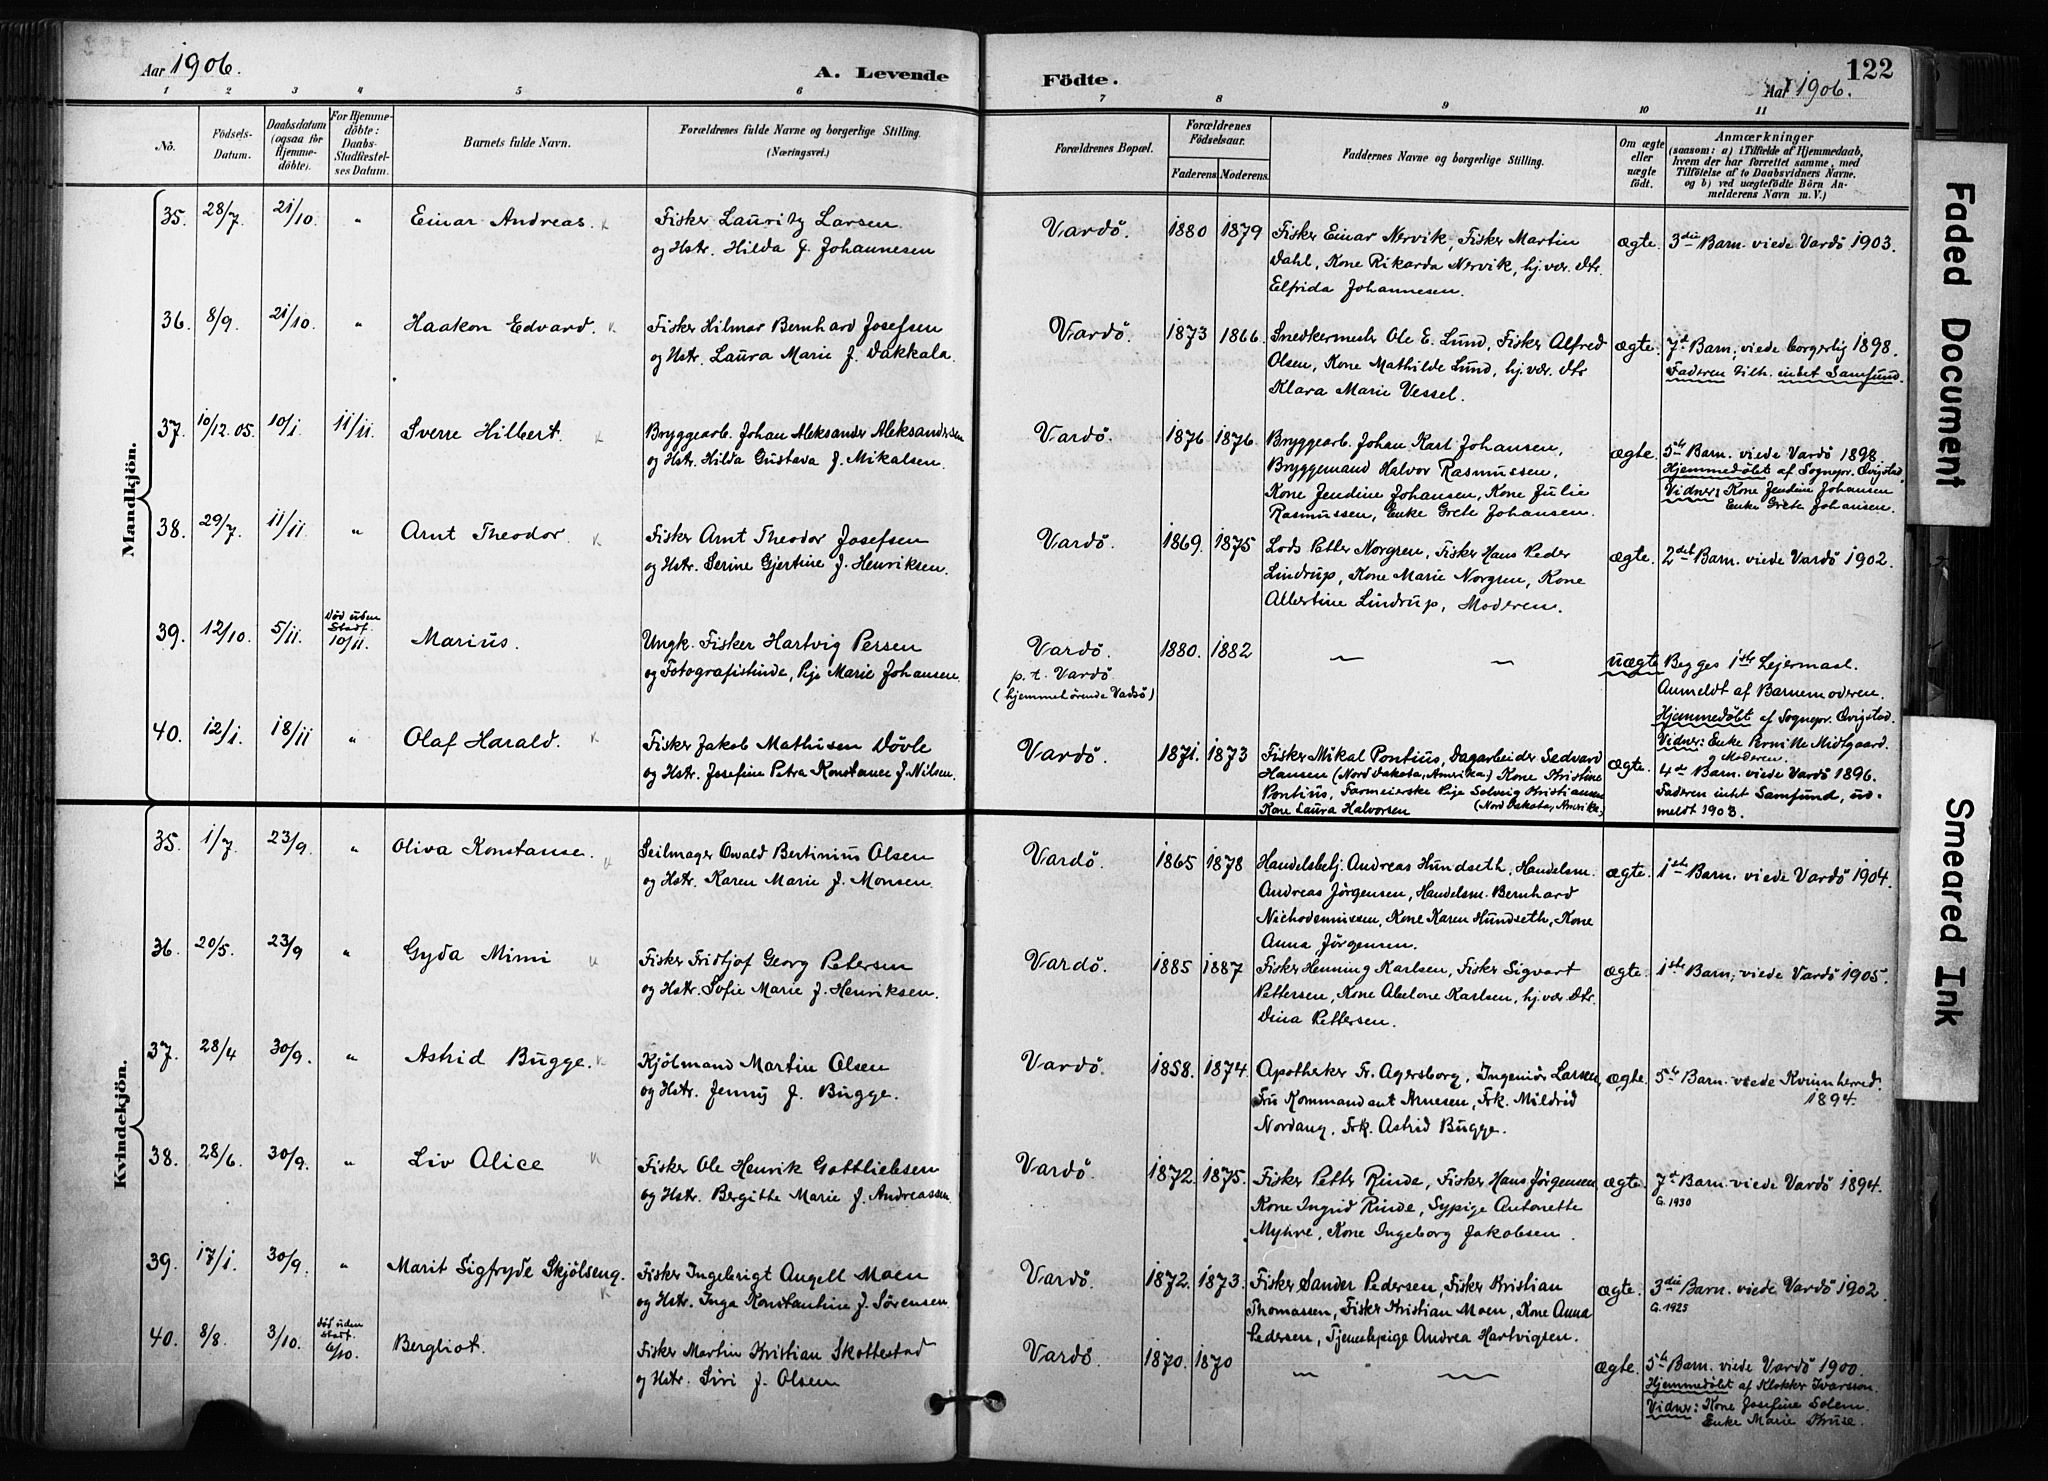 Aar 1906.
A. Levende Födte.
Aar 1906.
122
1 2 3 4 5 6 7 8 9 10 11
Nô.
Födsels-Datum.
Daabsdatum (ogsaa for Hjemme-döbte).
For Hjemme-döbte: Daabs-Stadfæstel-ses Datum.
Barnets fulde Navn.
Forældrenes fulde Navne og borgerlige Stilling. (Næringsvei.)
Forældrenes Bopæl.
Forældrenes Födselsaar.
Faderens. Moderens.
Faddernes Navne og borgerlige Stilling.
Om ægte eller uægte födt.
Anmærkninger
(saasom: a) i Tilfælde af Hjemmedaab,
hvem der har forrettet samme, med
Tilföielse af to Daabsvidners Navne.
og b) ved uægtefödte Börn An-
melderens Navn m. V.)
Mandkjön.
35. 28/7. 21/10. " Einar Andreas. Fisker Lauritz Larsen Vardö. 1880 1879 Fisker Einar Nervik, Fisker Martin ægte. 3die Barn. viede Vardö 1903.
og Hstr. Hilda f. Johannesen Dahl, Kone Rikarda Nervik, hj. vær. Dtr.
Elfrida Johannesen.
36. 8/9. 21/10. " Haakon Edvard. Fisker Hilmar Bernhard Josefsen Vardö. 1873 1866. Snedkermester Ole E. Lund, Fisker Alfred ægte. 7d Barn, viede borgerlig 1898.
og Hstr. Laura Marie f. Dakkala. Olsen, Kone Mathilde Lund, hj. vær. Dtr Faderen tilh. intet Samfund.
Klara Marie Vessel.
37. 10/12.05. 10/1. 11/11. Sverre Hilbert. Bryggearb. Johan Aleksander Aleksandersen Vardö. 1876 1876. Bryggearb. Johan Karl Johansen, ægte. 5te Barn. viede Vardö 1898.
og Hstr. Hilda Gustava f. Mikalsen. Bryggemand Halvor Rasmussen, Hjemmedöbt af Sognepr. Qvigstad.
Kone Jendine Johansen, Kone Julie Vidner: Kone Jendine Johansen
Rasmussen, Enke Grete Johansen. Enke Grete Johansen.
38. 29/7. 11/11. " Arnt Theodor. Fisker Arnt Theodor Josefsen Vardö. 1869. 1875 Lods Petter Norgren, Fisker Hans Peder ægte. 2det Barn. viede Vardö 1902.
og Hstr. Serine Gjertine f. Henriksen. Lindrup, Kone Marie Norgren, Kone
Albertine Lindrup, Moderen.
39. 12/10. 5/11. Död uden Stadf. 10/11. Marius. Ungk. Fisker Hartvig Persen Vardö. 1880. 1882 uægte Begges 1ste Lejermaal.
og Fotografistinde, Pige Marie Johansen. p. t. Vardö Anmeldt af Barnemoderen.
(hjemmehörende Vadsö) Hjemmedöbt af Sognepr. Qvigstad.
Vidner: Enke Pernille Midtgaard.
og Moderen.
40. 12/1. 18/11 " Olaf Harald. Fisker Jakob Mathisen Dövle Vardö. 1871. 1873 Fisker Mikal Pontius, Dagarbeider Sedvard ægte. 4de Barn. viede Vardö 1896.
og Hstr. Josefine Petra Konstance f. Nilsen. Hansen (Nord Dakota, Amerika.) Kone Kristine Faderen intet Samfund, ud-
Pontius, Farmeierske Pige Solveig Kristiansen meldt 1903.
Kone Laura Halvorsen (Nord Dakota, Amerika,)
Kvindekjön.
35. 1/7. 23/9. " Oliva Konstanse. Seilmager Osvald Bertinius Olsen Vardö. 1865 1878 Handelsbetj. Andreas Hundseth, Handelsm. ægte. 1ste Barn. viede Vardö 1904.
og Hstr. Karen Marie f. Monsen. Andreas Jørgensen, Handelsm. Bernhard
Nichodemussen, Kone Karen Hundseth, Kone
Anna Jørgensen.
36. 20/5. 23/9 " Gyda Mimi Fisker Fridtjof Georg Petersen Vardö. 1885 1887 Fisker Henning Karlsen, Fisker Sigvart ægte. 1ste Barn, viede Vardö 1905.
og Hstr. Sofie Marie f. Henriksen. Pettersen, Kone Abelone Karlsen, hj. vær. Dtr.
Dina Pettersen.
37. 28/4 30/9. " Astrid Bugge. Kjölmand Martin Olsen Vardö. 1858. 1874. Apotheker Fr. Agersborg, Ingeniör Larsen, ægte. 5te Barn. viede Kvinnherred.
og Hstr. Jenny f. Bugge. Fru Kommandant Arnesen, Frk. Mildrid 1894.
Nordang, Frk. Astrid Bugge.
38. 28/6. 30/9. " Liv Alice Fisker Ole Henrik Gottliebsen Vardö. 1872. 1875. Fisker Petter Rinde, Fisker Hans Jørgensen, ægte. 7d Barn. viede Vardö 1894.
og Hstr. Bergitte Marie f. Andreassen Kone Ingrid Rinde, Sypige Antonette G. 1930
Myhre, Kone Ingeborg Jakobsen.
39. 17/1. 30/9. " Marit Sigfryde Skjölseng. Fisker Ingebrigt Angell Moen Vardö. 1872. 1873. Fisker Sander Pedersen, Fisker Kristian ægte. 3die Barn. viede Vardö 1902.
og Hstr. Inga Konstantine f. Sørensen. Thomassen, Fisker Kristian Moen, Kone Anna G. 1925
Pedersen, Tjenestepige Andrea Hartvigsen.
40. 8/8. 3/10. Död uden Stadf. 6/10. Bergliot. Fisker Martin Kristian Skottestad Vardö. 1870. 1870 ægte. 5te Barn. viede Vardö 1900.
og Hstr. Siri f. Olsen Hjemmedöbt af Klokker Ivarsson.
Vidner: Kone Josefine Solem.
Enke Marie Kruse.
Faded Document
Smeared Ink